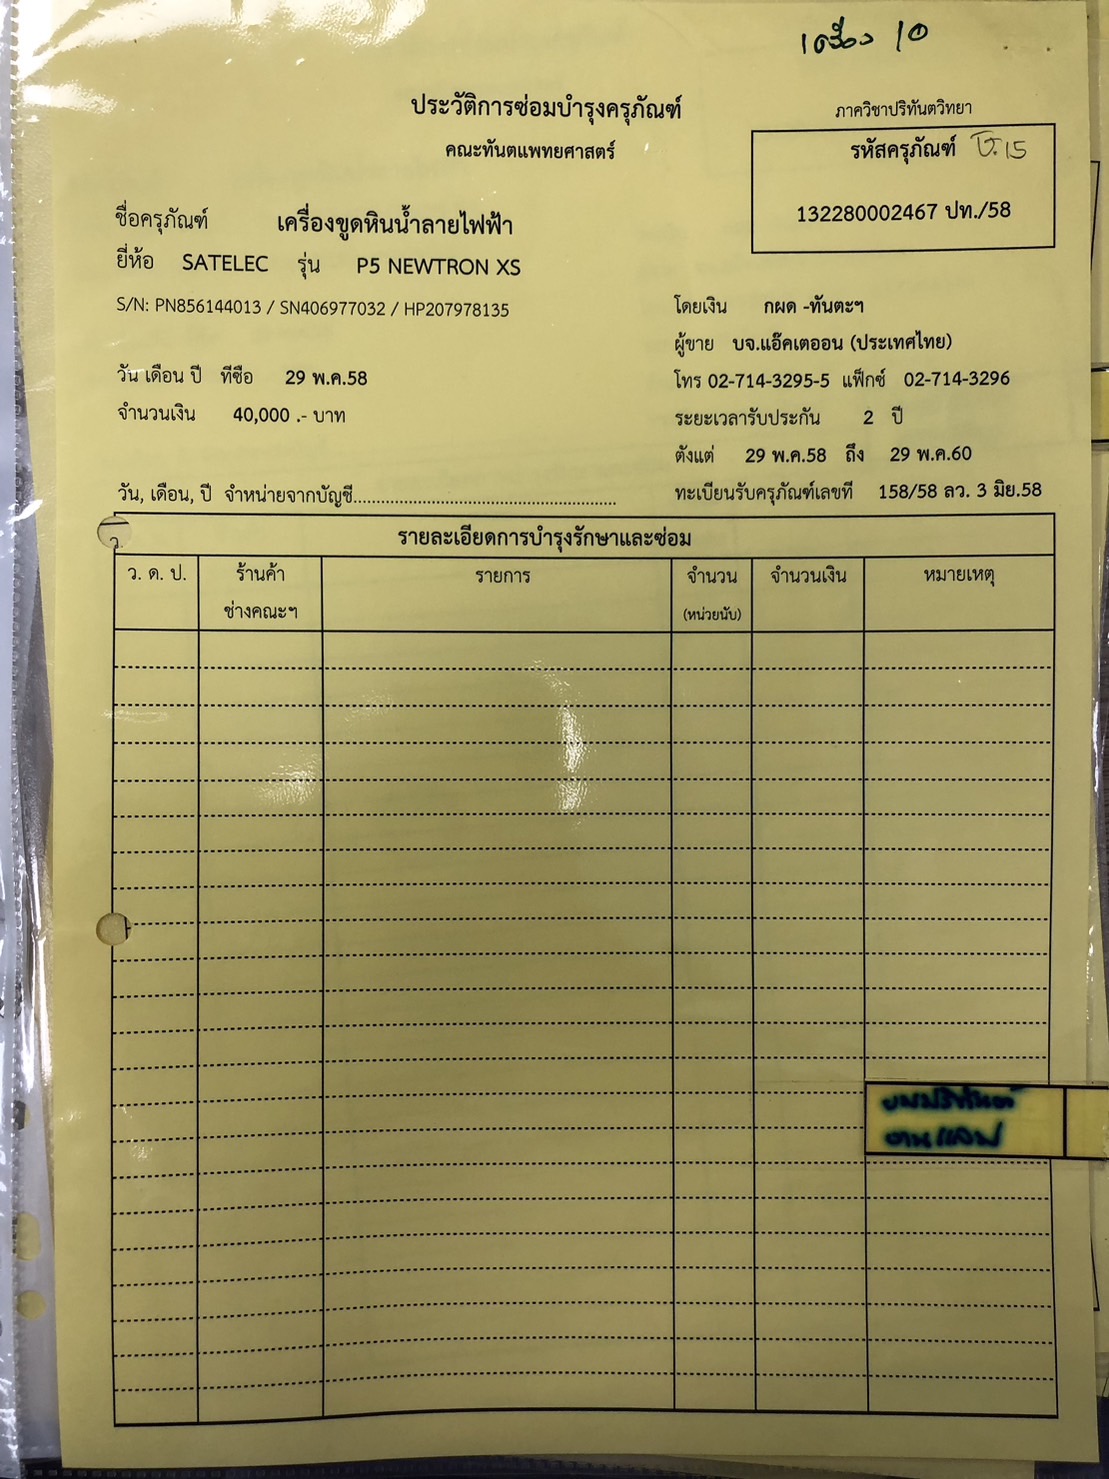 เครื่อง 10
ประวัติการซ่อมบำรุงครุภัณฑ์
ภาควิชาปริทันตวิทยา
คณะทันตแพทยศาสตร์
รหัสครุภัณฑ์
132280002467 ปท./58
ชื่อครุภัณฑ์ เครื่องขูดหินน้ำลายไฟฟ้า
ยี่ห้อ SATELEC รุ่น P5 NEWTRON XS
S/N: PN856144013 / SN406977032 / HP207978135
โดยเงิน กผด -ทันตะฯ
ผู้ขาย บจ.แอ๊คเตออน (ประเทศไทย)
วัน เดือน ปี ที่ซื้อ 29 พ.ค.58
โทร 02-714-3295-5 แฟ็กซ์ 02-714-3296
จำนวนเงิน 40,000 .- บาท
ระยะเวลารับประกัน 2 ปี
ตั้งแต่ 29 พ.ค.58 ถึง 29 พ.ค.60
วัน, เดือน, ปี จำหน่ายจากบัญชี
ทะเบียนรับครุภัณฑ์เลขที่ 158/58 ลว. 3 มิย.58
ว.
รายละเอียดการบำรุงรักษาและซ่อม
ว. ด. ป. ร้านค้า รายการ จำนวน จำนวนเงิน หมายเหตุ
ช่างคณะฯ (หน่วยนับ)